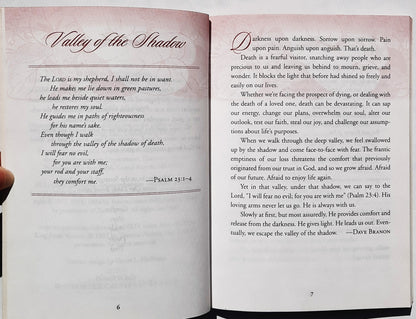 Valley of the Shadow
The LORD is my shepherd, I shall not be in want.
He makes me lie down in green pastures,
he leads me beside quiet waters,
he restores my soul.
He guides me in paths of righteousness
for his name's sake.
Even though I walk
through the valley of the shadow of death,
I will fear no evil,
for you are with me;
your rod and your staff,
they comfort me.
—PSALM 23:1-4
6
Darkness upon darkness. Sorrow upon sorrow. Pain
upon pain. Anguish upon anguish. That's death.
Death is a fearful visitor, snatching away people who are
precious to us and leaving us behind to mourn, grieve, and
wonder. It blocks the light that before had shined so freely and
easily on our lives.
Whether we're facing the prospect of dying, or dealing with
the death of a loved one, death can be devastating. It can sap
our energy, change our plans, overwhelm our soul, alter our
outlook, test our faith, steal our joy, and challenge our assump-
tions about life's purposes.
When we walk through the deep valley, we feel swallowed
up by the shadow and come face-to-face with fear. The frantic
emptiness of our loss threatens the comfort that previously
originated from our trust in God, and so we grow afraid. Afraid
of our future. Afraid to enjoy life again.
Yet in that valley, under that shadow, we can say to the
Lord, "I will fear no evil; for you are with me" (Psalm 23:4). His
loving arms never let us go. He is always with us.
Slowly at first, but most assuredly, He provides comfort and
release from the darkness. He gives light. He leads us out. Even-
tually, we escape the valley of the shadow. —DAVE BRANON
7